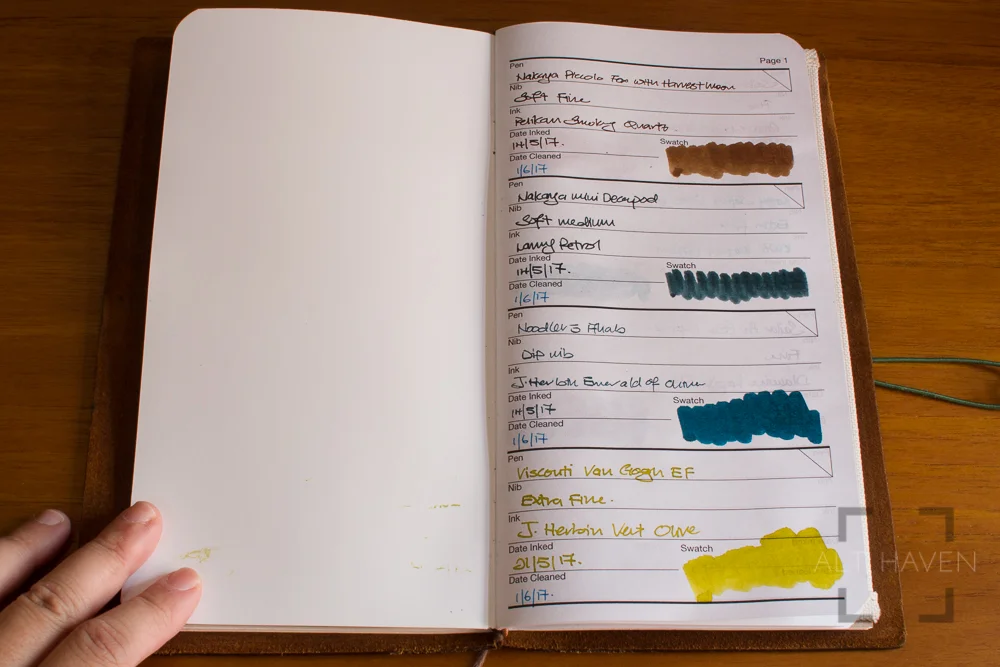 Page 1
Pen
Nakaya Piccolo Fox with Harvest Moon
Nib
Soft Fine
Ink
Pelikan Smoky Quartz.
Date Inked
14/5/17.
Swatch
Date Cleaned
1/6/17
Pen
Nakaya mini Decapod
Nib
Soft medium
Ink
Lamy Petrol
Date Inked
14/5/17.
Swatch
Date Cleaned
1/6/17
Pen
Noodler's Ahab
Nib
Dip nib
Ink
J. Herbin Emerald of
Date Inked
14/5/17
Swatch
Date Cleaned
1/6/17
Pen
Visconti Van Gogh EF
Nib
Extra Fine.
Ink
J. Herbin Vert Olive
Date Inked
21/5/17.
Swatch
Date Cleaned
1/6/17.
ALT HAVEN